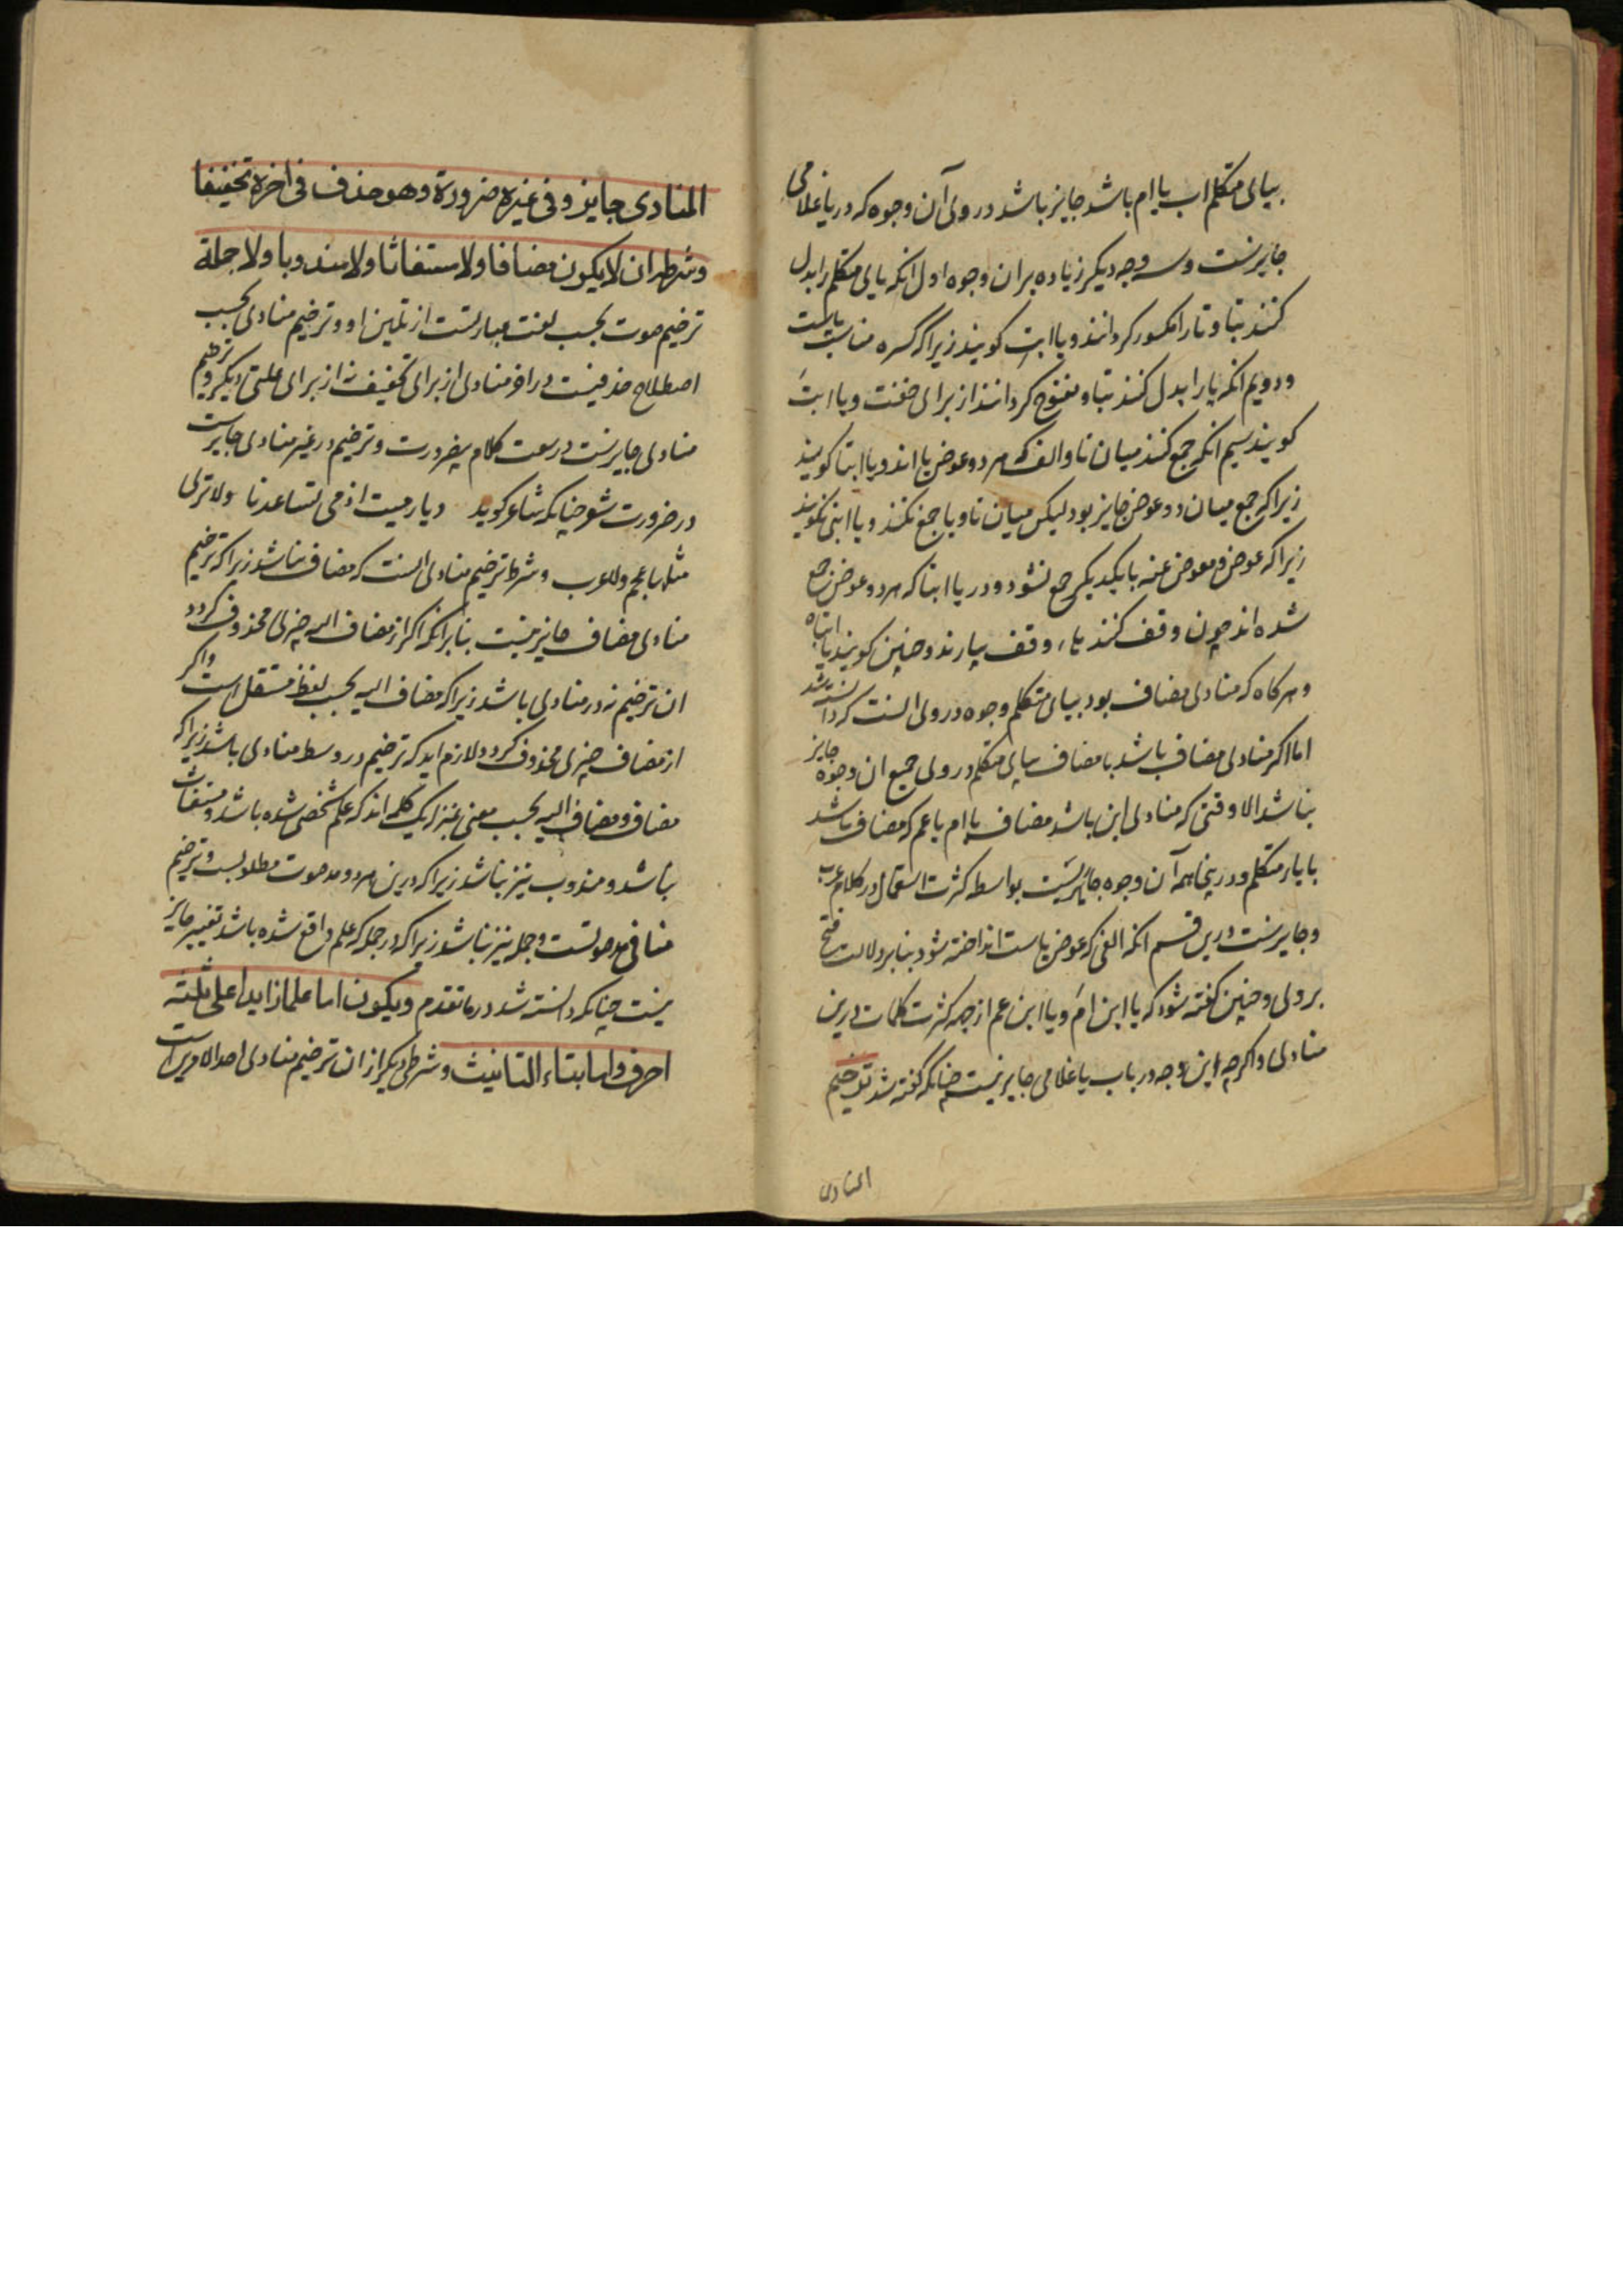 بیای متکلم اب یا ام باشد جایز باشد در وی آن وجوه که در یا غلامی
جایزست و سه وجه دیکر زیاده بران وجوه اول انکه یای متکلم را بدل
کنند بتا و تا را مکسور کردانند و یا ابت کویند زیرا که کسره مناسب یاست
و دویم انکه یا را بدل کنند بتا و مفتوح کردانند از برای خفت و یا ابتَ
کویند سیم انکه جمع کنند میان تا و الف که هر دو عوض یا اند و یا ابتا کویند
زیرا که جمع میان دو عوض جایز بود لیکن میان تا و یا جمع نکنند و یا ابتی نکویند
زیرا که عوض و معوض عنه با یکدیکر جمع نشود و در یا ابتا که هر دو عوض جمع
شده اند چون وقف کنند هاء وقف بیارند و چنین کویند یا ابتاه
و هرکاه که منادی مضاف بود بیای متکلم وجوه در وی انست که دانسته شد
اما اکر منادی مضاف باشد با مضاف بیای متکلم در وی جمیع ان وجوه جایز
نباشد الا وقتی که منادی ابن باشد مضاف با ام یا عم که مضاف باشد
با یاء متکلم و درینجا همه آن وجوه جایزست بواسطه کثرت استعمال در کلام عرب
و جایزست درین قسم انکه الفی که عوض یاست انداخته شود بنا بر دلالت فتح
بر وی و چنین کفته شود که یا ابن امَ و یا ابن عم از جهة کثرت کلمات درین
منادی و اکرچه این وجه در باب یا غلامی جایز نیست چنانکه کفته شد ترخیم
المنادی
المنادی جایز و فی غیره ضرورة و هو حذف فی اخره تخفیفا
و شرطه ان لا یکون مضافا و لا مستغاثا و لا مندوبا و لا جملة
ترخیم صوت بحسب لغت عبارتست از تلین او و ترخیم منادی بحسب
اصطلاح حذفیست در اخر منادی از برای تخفیف نه از برای علتی دیکر و ترخیم
منادی جایزست در سعت کلام بی‌ضرورت و ترخیم در غیر منادی جایزست
در ضرورت شعر چنانکه شاعر کوید دیار میت اذ می تساعدنا ولا تری
مثلها عجم ولا عرب و شرط ترخیم منادی انست که مضاف نباشد زیرا که ترخیم
منادی مضاف جایز نیست بنابر انکه اکر از مضاف الیه چیزی محذوف کردد
ان ترخیم نه در منادی باشد زیرا که مضاف الیه بحسب لفظ مستقل است و اکر
از مضاف چیزی محذوف کردد لازم اید که ترخیم در وسط منادی باشد زیرا که
مضاف و مضاف الیه بحسب معنی بمنزله یک کلمه اند که علم شخصی شده باشد و مستغاث
نباشد و مندوب نیز نباشد زیرا که درین هر دو مد صوت مطلوبست و ترخیم
منافی مد صوتست و جمله نیز نباشد زیرا که در جمله که علم واقع شده باشد تغییر جایز
نیست چنانکه دانسته شد در ما تقدم و یکون اما علما زایدا علی ثلثة
احرف و اما بتاء التانیث و شرطی دیکر از ان ترخیم منادی احد الامرین است